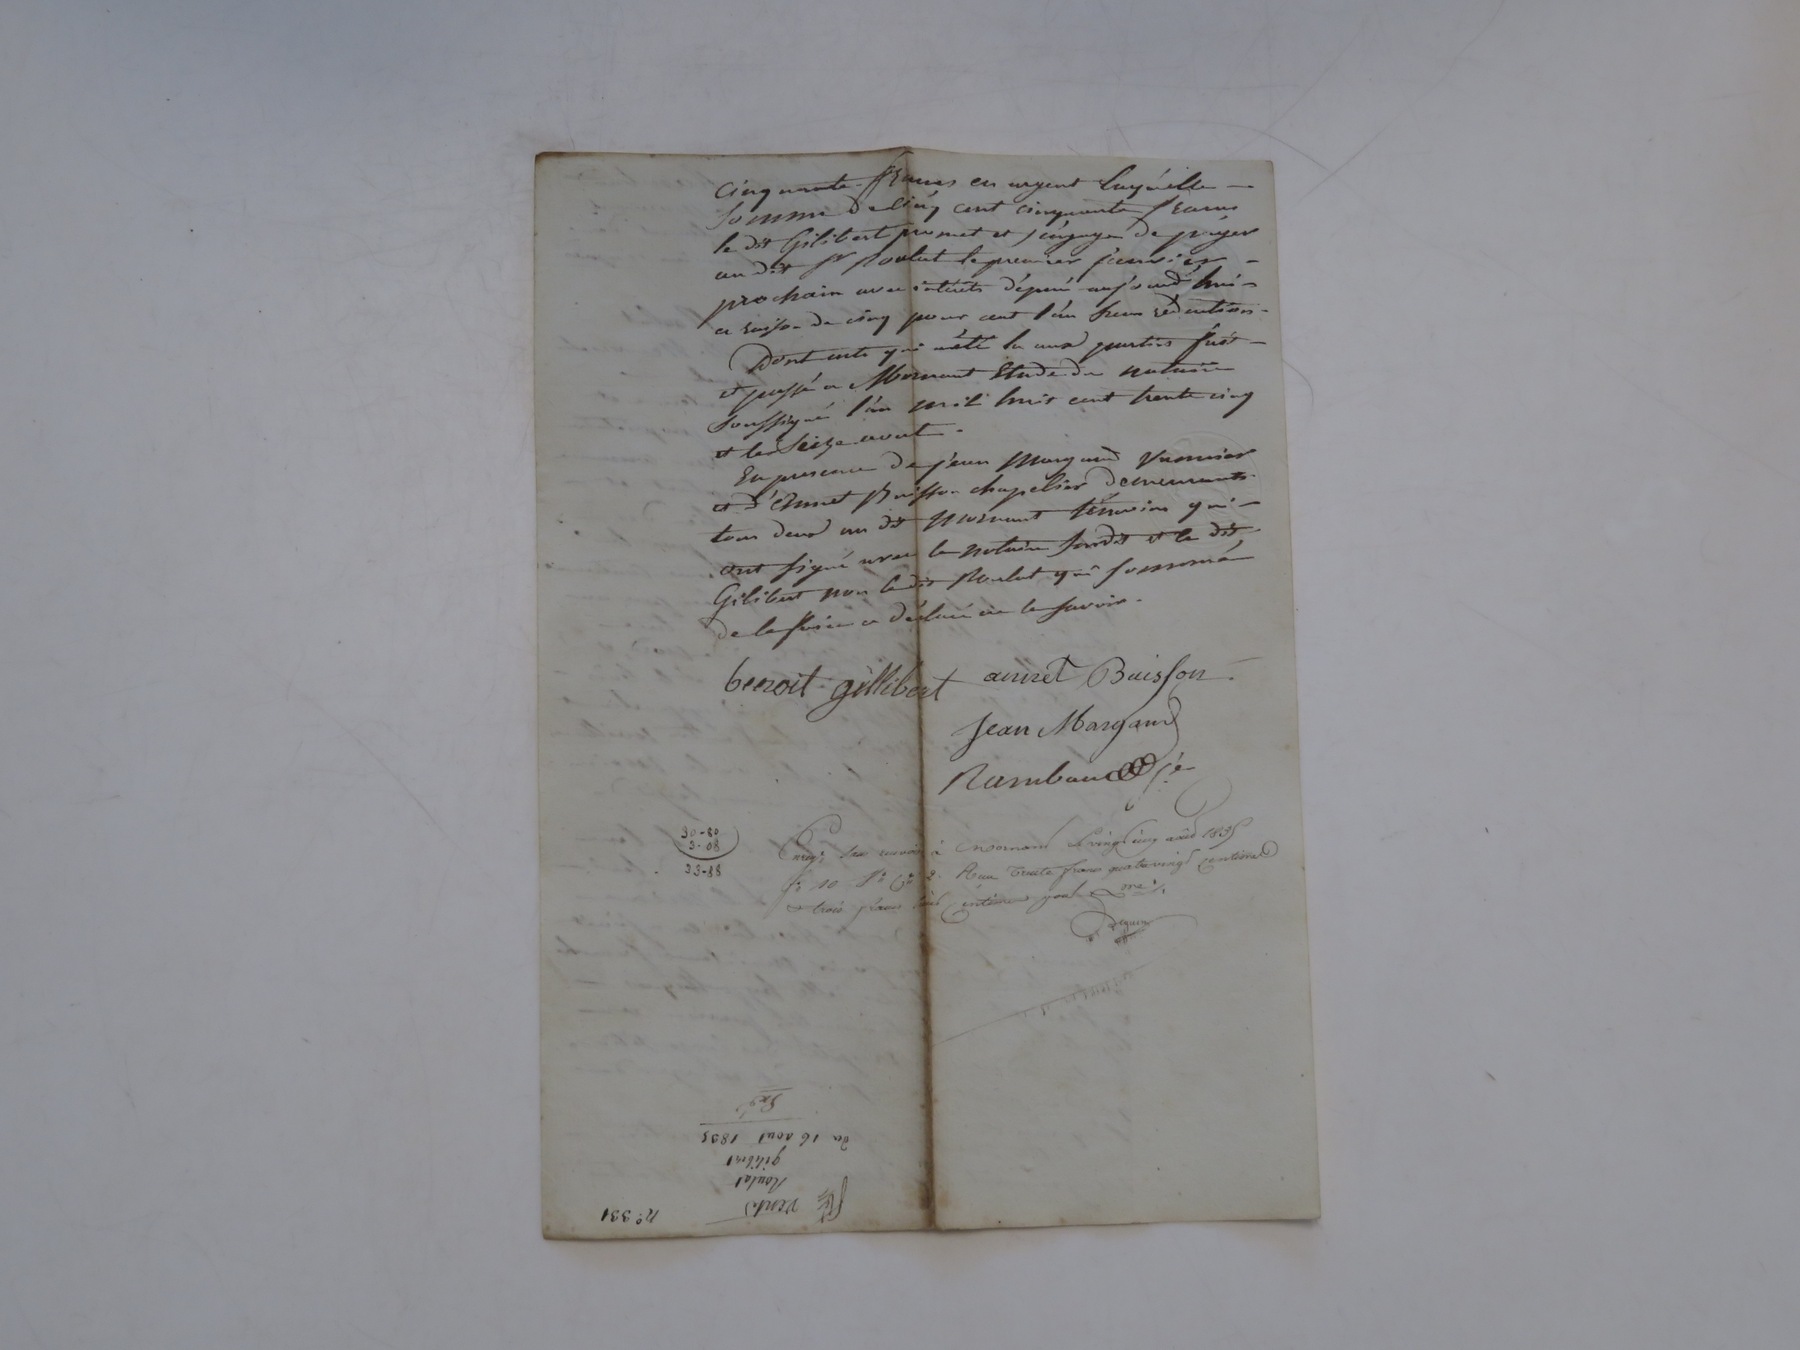 Cinquante francs en argent laquelle —
somme de cinq cent cinquante francs
le dit Gilibert promet et s'engage de payer
au dit Sr Roulat le premier janvier —
prochain avec intérêts depuis aujourd'hui —
a raison de cinq pour cent l'an sans rédentions -
Dont acte qui a été lu aux parties fait —
et passé a Mornant Etude du notaire
soussigné l'an mil huit cent trente cinq
et le Seize aout.
En presence de jean Margand
et d'Annet Buisson chapelier demeurants
tous deux au dit Mornant témoins qui —
ont signé avec le notaire susdit et le dit
Gilibert non le dit Roulat qui sommé
de le faire a déclaré ne le savoir.
benoit gillibert annet Buisson
Jean Margand
Rambaud
30-80
3-08
33-88
Enreg. à Mornant le vingt cinq août 1835
fo 10 Ro Reçu trente francs quatre vingt centimes
et trois francs huit centimes pour
Vente
Roulat
gilibert
du 16 aout 1835
no 331